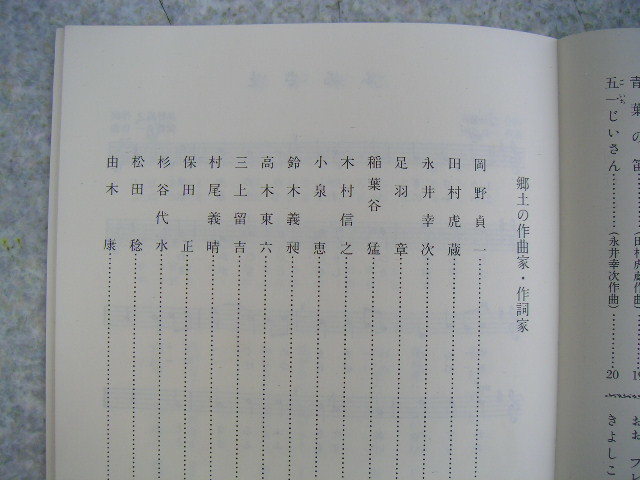 青葉の笛……(田村虎蔵作曲)……19
五一じいさん……(永井幸次作曲)……20
おお ブレ
きよしこ
郷土の作曲家・作詞家
岡野貞一
田村虎蔵
永井幸次
足羽章
稲葉谷猛
木村信之
小泉恵
鈴木義昶
高木東六
三上留吉
村尾義晴
保田正
杉谷代水
松田稔
由木康